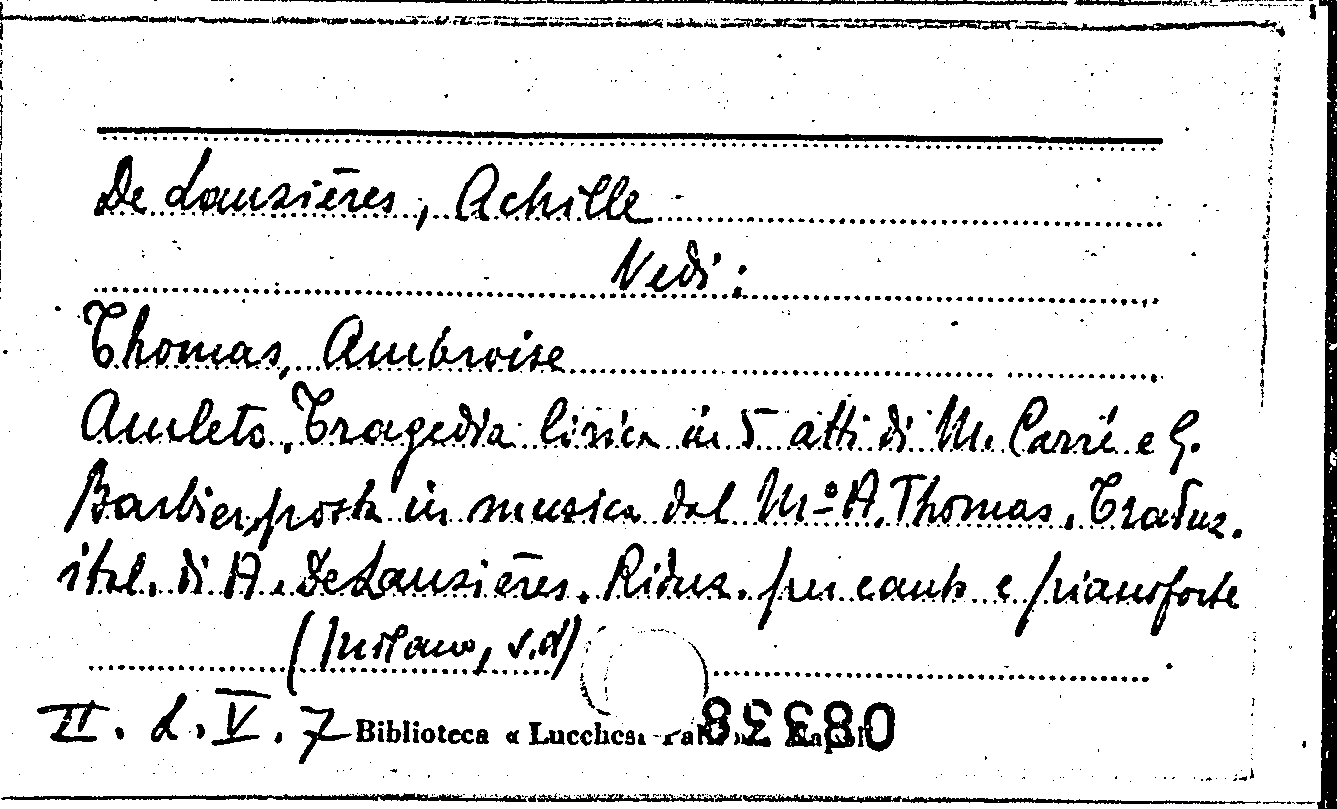 De Lauzières, Achille
Vedi:
Thomas, Ambroise
Amleto. Tragedia lirica in 5 atti di M. Carré e G.
Barbier, posta in musica dal Mº A. Thomas. Traduz.
ital. di A. De Lauzières. Riduz. per canto e pianoforte
(Milano, s.d)
II. L. V. 7 Biblioteca « Lucchesi